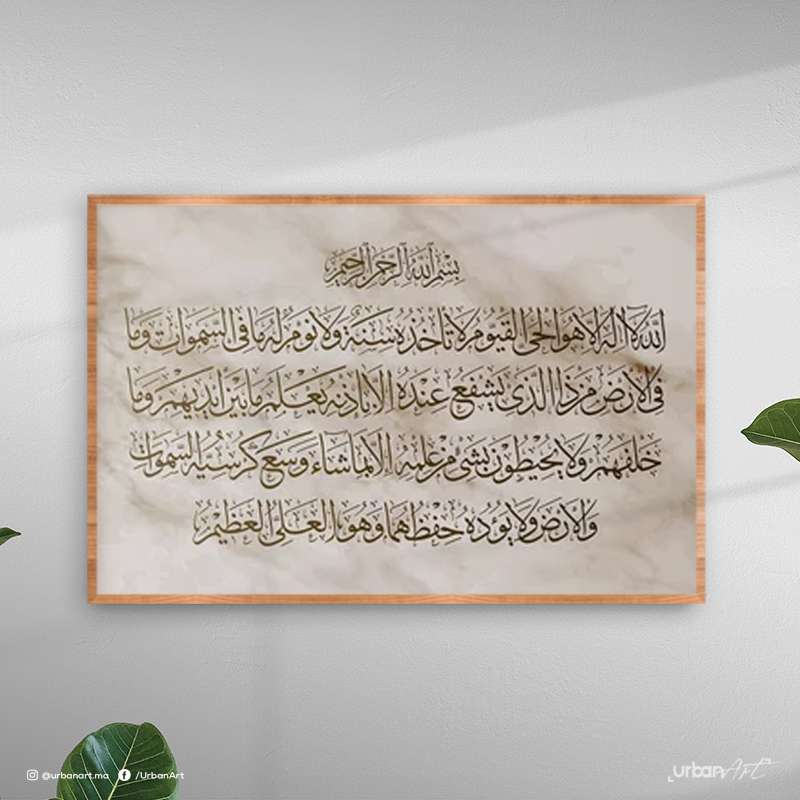 بِسْمِ اللَّهِ الرَّحْمَنِ الرَّحِيمِ
اللَّهُ لَا إِلَهَ إِلَّا هُوَ الْحَيُّ الْقَيُّومُ لَا تَأْخُذُهُ سِنَةٌ وَلَا نَوْمٌ لَهُ مَا فِي السَّمَوَاتِ وَمَا
فِي الْأَرْضِ مَنْ ذَا الَّذِي يَشْفَعُ عِنْدَهُ إِلَّا بِإِذْنِهِ يَعْلَمُ مَا بَيْنَ أَيْدِيهِمْ وَمَا
خَلْفَهُمْ وَلَا يُحِيطُونَ بِشَيْءٍ مِنْ عِلْمِهِ إِلَّا بِمَا شَاءَ وَسِعَ كُرْسِيُّهُ السَّمَوَاتِ
وَالْأَرْضَ وَلَا يَئُودُهُ حِفْظُهُمَا وَهُوَ الْعَلِيُّ الْعَظِيمُ
@urbanart.ma /UrbanArt
urbanArt